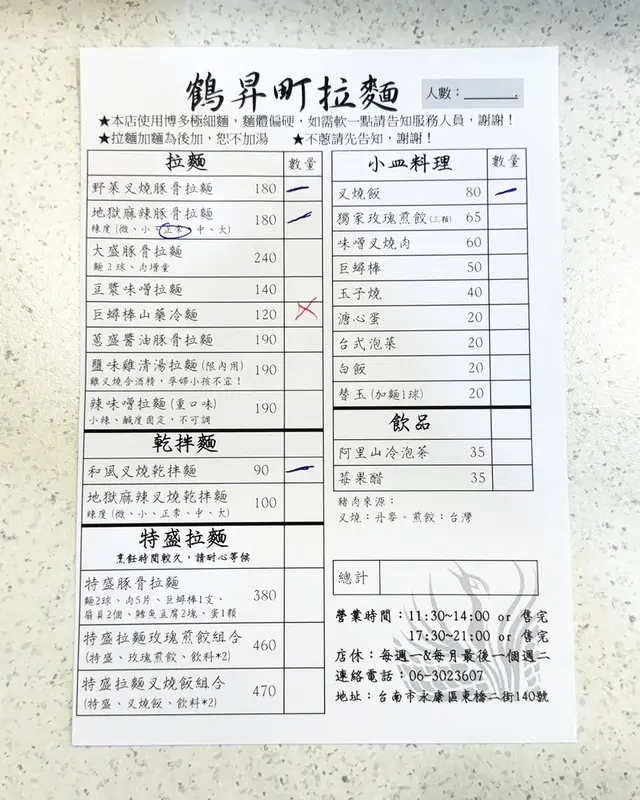 鶴昇町拉麵
人數：
★本店使用博多極細麵，麵體偏硬，如需軟一點請告知服務人員，謝謝！
★拉麵加麵為後加，恕不加湯 ★不蔥請先告知，謝謝！
拉麵 數量
野菜叉燒豚骨拉麵 180
地獄麻辣豚骨拉麵 180
辣度(微、小、正常、中、大)
大盛豚骨拉麵 240
麵2球、肉增量
豆漿味噌拉麵 140
巨蟳棒山藥冷麵 120
蔥盛醬油豚骨拉麵 190
鹽味雞清湯拉麵(限內用) 190
雞叉燒含酒精，孕婦小孩不宜！
辣味噌拉麵(重口味) 190
小辣、鹹度固定，不可調
乾拌麵
和風叉燒乾拌麵 90
地獄麻辣叉燒乾拌麵 100
辣度(微、小、正常、中、大)
特盛拉麵
烹飪時間較久，請耐心等候
特盛豚骨拉麵 380
麵2球、肉5片、巨蟳棒1支、
扇貝2個、鱈魚豆腐2塊、蛋1顆
特盛拉麵玫瑰煎餃組合 460
(特盛、玫瑰煎餃、飲料*2)
特盛拉麵叉燒飯組合 470
(特盛、叉燒飯、飲料*2)
小皿料理 數量
叉燒飯 80
獨家玫瑰煎餃(三顆) 65
味噌叉燒肉 60
巨蟳棒 50
玉子燒 40
溏心蛋 20
台式泡菜 20
白飯 20
替玉(加麵1球) 20
飲品
阿里山冷泡茶 35
莓果醋 35
豬肉來源：
叉燒：丹麥。煎餃：台灣
總計
營業時間：11:30~14:00 or 售完
17:30~21:00 or 售完
店休：每週一&每月最後一個週二
連絡電話：06-3023607
地址：台南市永康區東橋二街140號